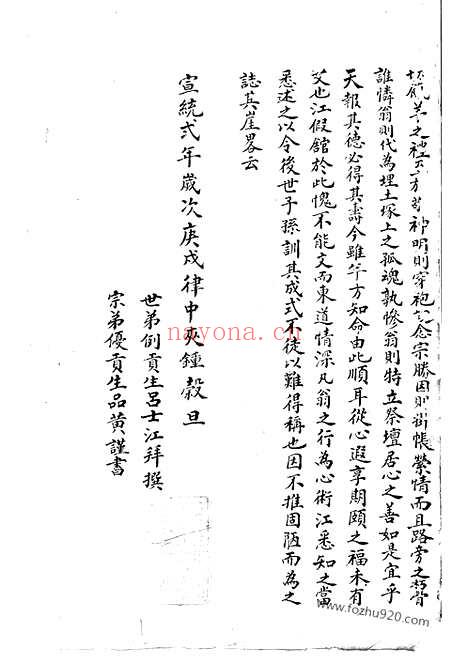 善之神明則穿袍念宗勝因則掛帳縈情而且路旁之枯骨
誰憐翁則代為埋土塚上之孤魂孰慘翁則特立祭壇居心之善如是宜乎
天報其德必得其壽今雖年方知命由此順耳從心遐享期頤之福未有
艾也江假館於此愧不能文而東道情深凡翁之行為心術江悉知之當
悉述之以令後世子孫訓其成式不徒以難得稱也因不推固陋而為之
誌其崖畧云
宣統弍年歲次庚戌律中夾鍾穀旦
世弟例貢生呂士江拜撰
宗弟優貢生品黃謹書
nayona.cn
www.fozhu920.com